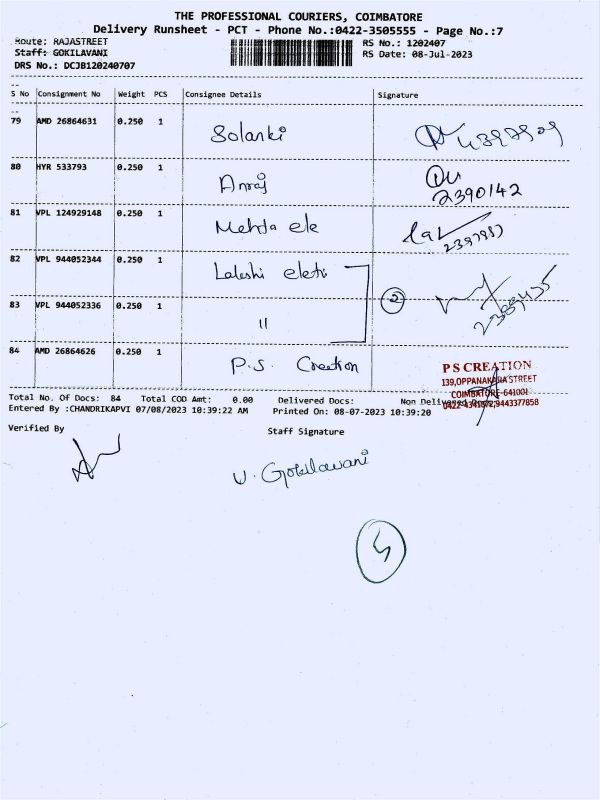 THE PROFESSIONAL COURIERS, COIMBATORE
Delivery Runsheet - PCT - Phone No.:0422-3505555 - Page No.:7
Route: RAJASTREET RS No.: 1202407
Staff: GOKILAVANI RS Date: 08-Jul-2023
DRS No.: DCJB120240707
S No Consignment No Weight PCS Consignee Details Signature
79 AMD 26864631 0.250 1 Solanki
80 HYR 533793 0.250 1 Anraj 2390142
81 VPL 124929148 0.250 1 Mehta ele
82 VPL 944052344 0.250 1 Lakshi eletri
83 VPL 944052336 0.250 1 11 2
84 AMD 26864626 0.250 1 P.S. Creation
P S CREATION
139,OPPANAKARA STREET
COIMBATORE-641001
Total No. Of Docs: 84 Total COD Amt: 0.00 Delivered Docs: Non Delivered Docs:
Entered By :CHANDRIKAPVI 07/08/2023 10:39:22 AM Printed On: 08-07-2023 10:39:20
Verified By Staff Signature
V. Gokilavani
5